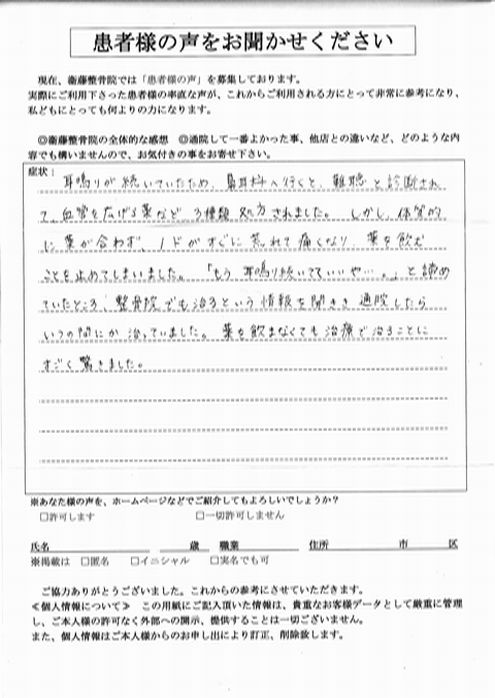 患者様の声をお聞かせください
現在、衛藤整骨院では「患者様の声」を募集しております。
実際にご利用下さった患者様の率直な声が、これからご利用される方にとって非常に参考になり、
私どもにとっても何よりの力になります。
◎衛藤整骨院の全体的な感想 ◎通院して一番よかった事、他店との違いなど、どのような内
容でも構いませんので、お気付きの事をお寄せ下さい。
症状:
耳鳴りが続いていたため、鼻耳科へ行くと、難聴と診断され
て、血管を広げる薬など 3種類 処方されました。 しかし、体質的
に薬が合わず、ノドがすぐに荒れて痛くなり、薬を飲む
ことを止めてしまいました。 「もう 耳鳴り続いてていいや…。」と諦め
ていたところ、整骨院でも治るという情報を聞き 通院したら
いつの間にか 治っていました。 薬を飲まなくても 治療で治ることに
すごく驚きました。
※あなた様の声を、ホームページなどでご紹介してもよろしいでしょうか?
□許可します □一切許可しません
氏名 歳 職業 住所 市 区
※掲載は □匿名 □イニシャル □実名でも可
ご協力ありがとうございました。これからの参考にさせていただきます。
≪個人情報について≫ この用紙にご記入頂いた情報は、貴重なお客様データとして厳重に管理
し、ご本人の許可なく外部への開示、提供することは一切ございません。
また、個人情報はご本人様からのお申し出により訂正、削除致します。